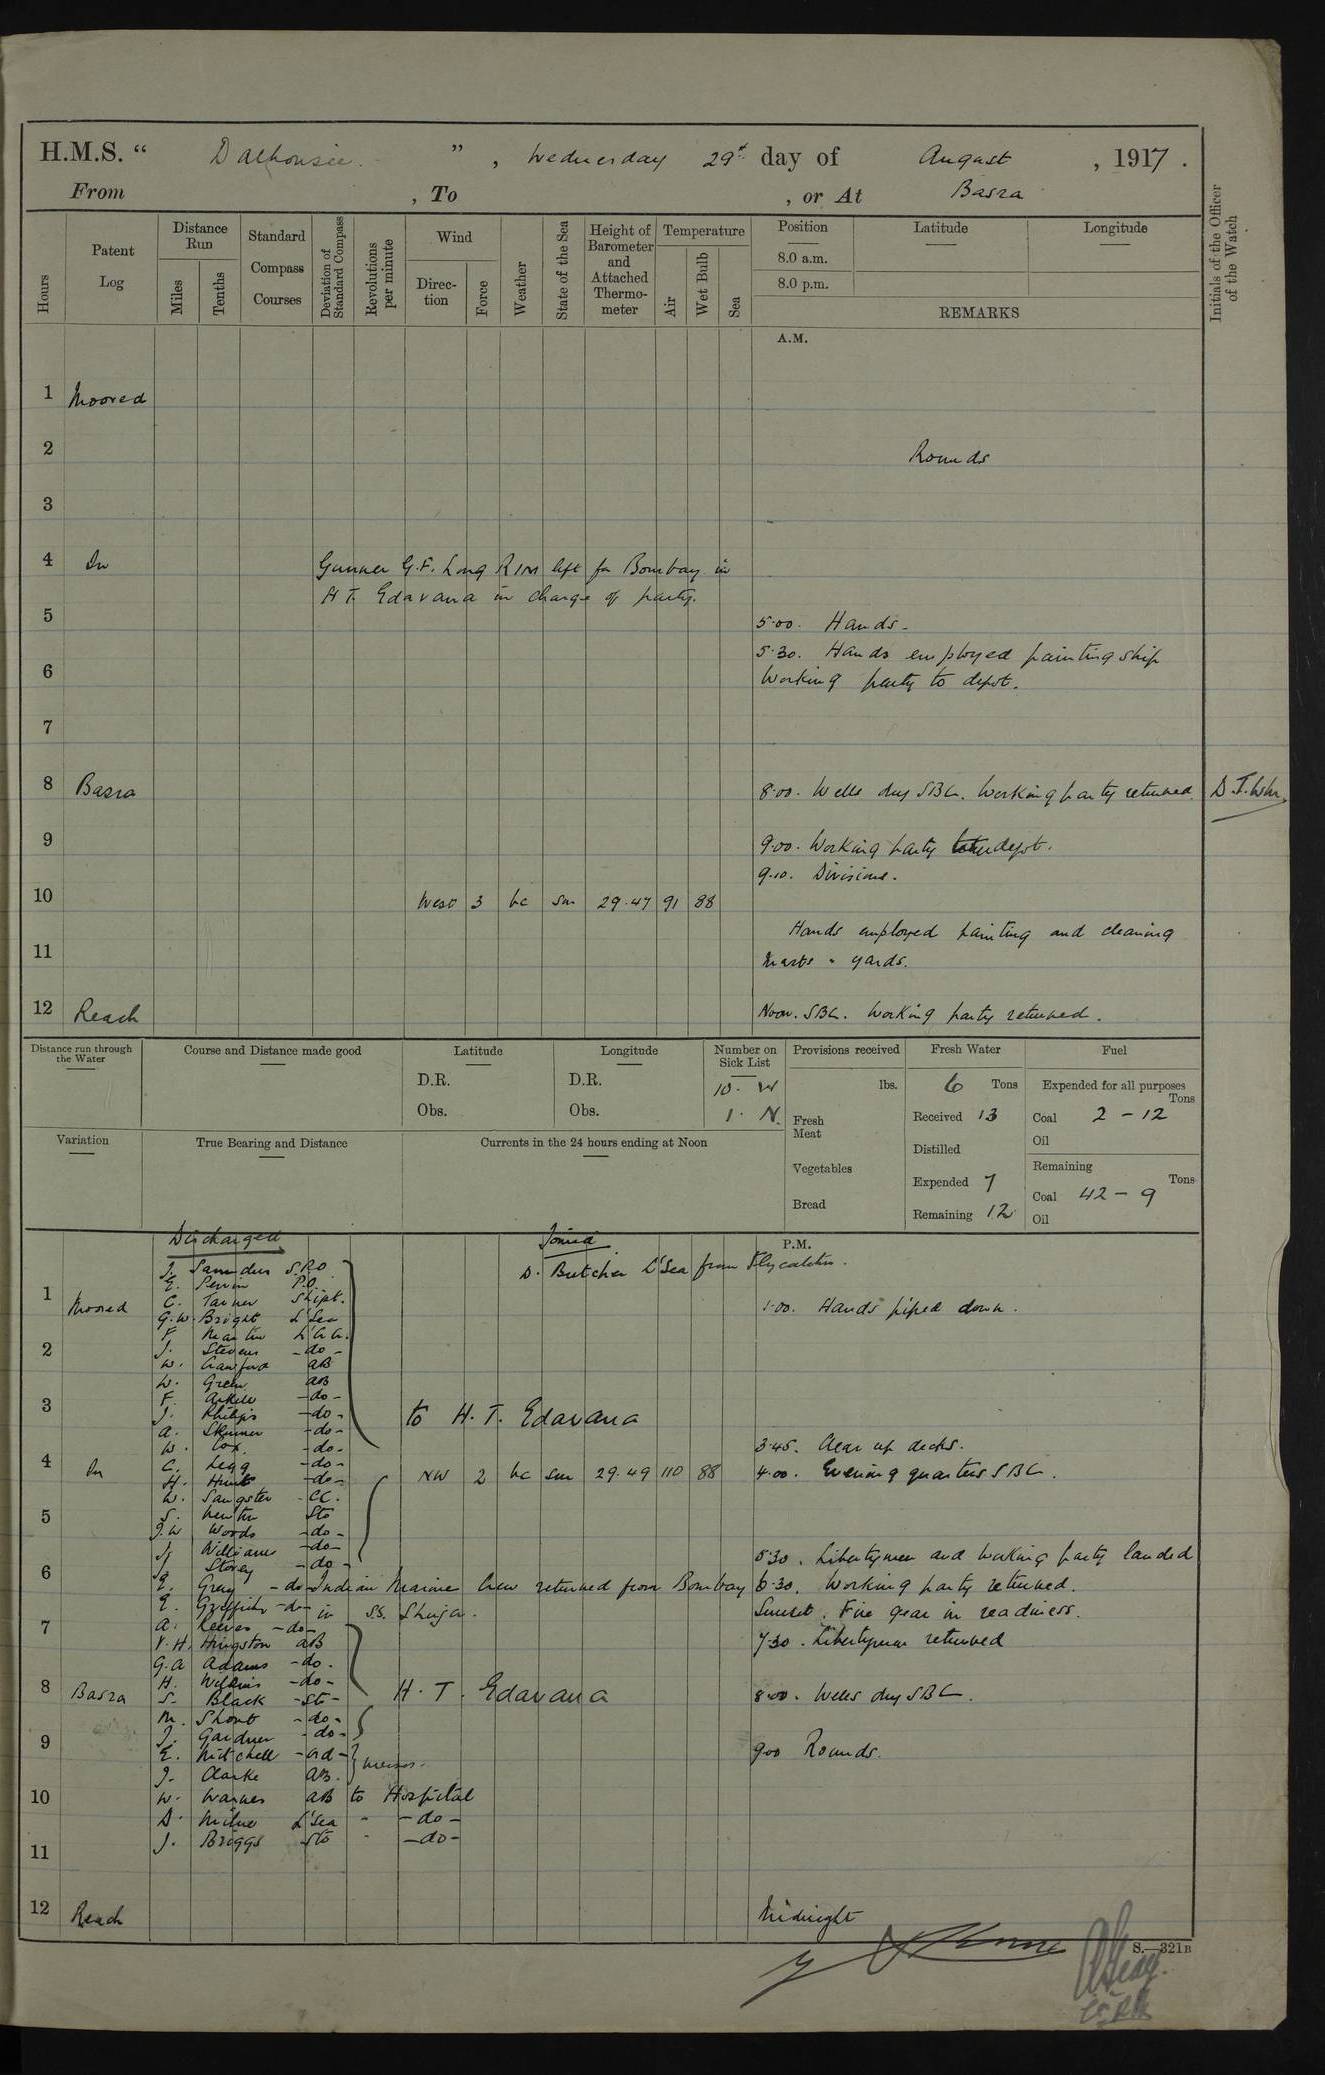 H.M.S. " Dalhousie " , Wednesday 29th day of August , 1917 .
From , To , or At Basra
Hours
Patent Log
Distance Run
Miles
Tenths
Standard Compass Courses
Deviation of Standard Compass
Revolutions per minute
Wind
Direction
Force
Weather
State of the Sea
Height of Barometer and Attached Thermometer
Temperature
Air
Wet Bulb
Sea
Position
8.0 a.m.
8.0 p.m.
Latitude
Longitude
REMARKS
Initials of the Officer of the Watch
A.M.
1 Moored
2 Rounds
3
4 In Gunner G.F. Long RIM left for Bombay in
H T. Edavana in charge of party.
5 5.00. Hands -
5.30. Hands employed painting ship
6 Working party to depot.
7
8 Basra 8.00. Wells dry SBC. Working party returned
9 9.00. Working party depot.
9.10. Divisions.
10 West 3 bc sm 29.47 91 88
Hands employed painting and cleaning
11 Masts " yards.
12 Reach Noon. SBC. Working party returned.
Distance run through the Water
Course and Distance made good
Latitude
D.R.
Obs.
Longitude
D.R.
Obs.
Number on Sick List
10. W
1. N.
Provisions received
lbs.
Fresh Meat
Vegetables
Bread
Fresh Water
6 Tons
Received 13
Distilled
Expended 7
Remaining 12
Fuel
Expended for all purposes
Tons
Coal 2 - 12
Oil
Remaining
Tons
Coal 42 - 9
Oil
Variation
True Bearing and Distance
Currents in the 24 hours ending at Noon
Discharged
Joined
P.M.
D. Butcher L'Sea from Flycatcher.
J. Saunders S.P.O
E. Perrin P.O.
1 Moored
C. Tanner Shipt.
1.00. Hands piped down.
G.W. Bright L'Sea
F. Martin
2
J. Stevens -do-
W. Crawford AB
W. Green AB
F. -do-
3
J. Philips -do-
to H.T. Edavana
A. Skinner -do-
W. Cox. -do-
3.45. Clear up decks.
4 In
C. Legg -do-
NW 2 bc sm 29.49 110 88
4.00. Evening quarters SBC.
H. Hunt -do-
W. Sangster CC.
5
S. Sto
J.W Woods -do-
J. Williams -do-
5.30. Libertymen and working party landed
J. Storey -do-
6
E. Gray -do- Indian Marine Crew returned from Bombay
6.30. Working party returned.
E. Griffiths -do- in S.S. Shuja.
Sunset. Fire gear in readiness.
7
A. Reeves -do-
7.30. Libertymen returned
V.H. Hingston AB
G.A Adams -do-
H. Wilkins -do-
8 Basra
S. Black -Sto-
H. T. Edavana
8.00. Wells dry SBC.
M. Short -do-
J. Gardner -do-
9
E. Mitchell -ord-
9.00 Rounds.
J. Clarke AB.
10
W. Warner AB to Hospital
D. Milne L'Sea " -do-
J. Briggs Sto " -do-
11
12 Reach
Midnight
S.—321B